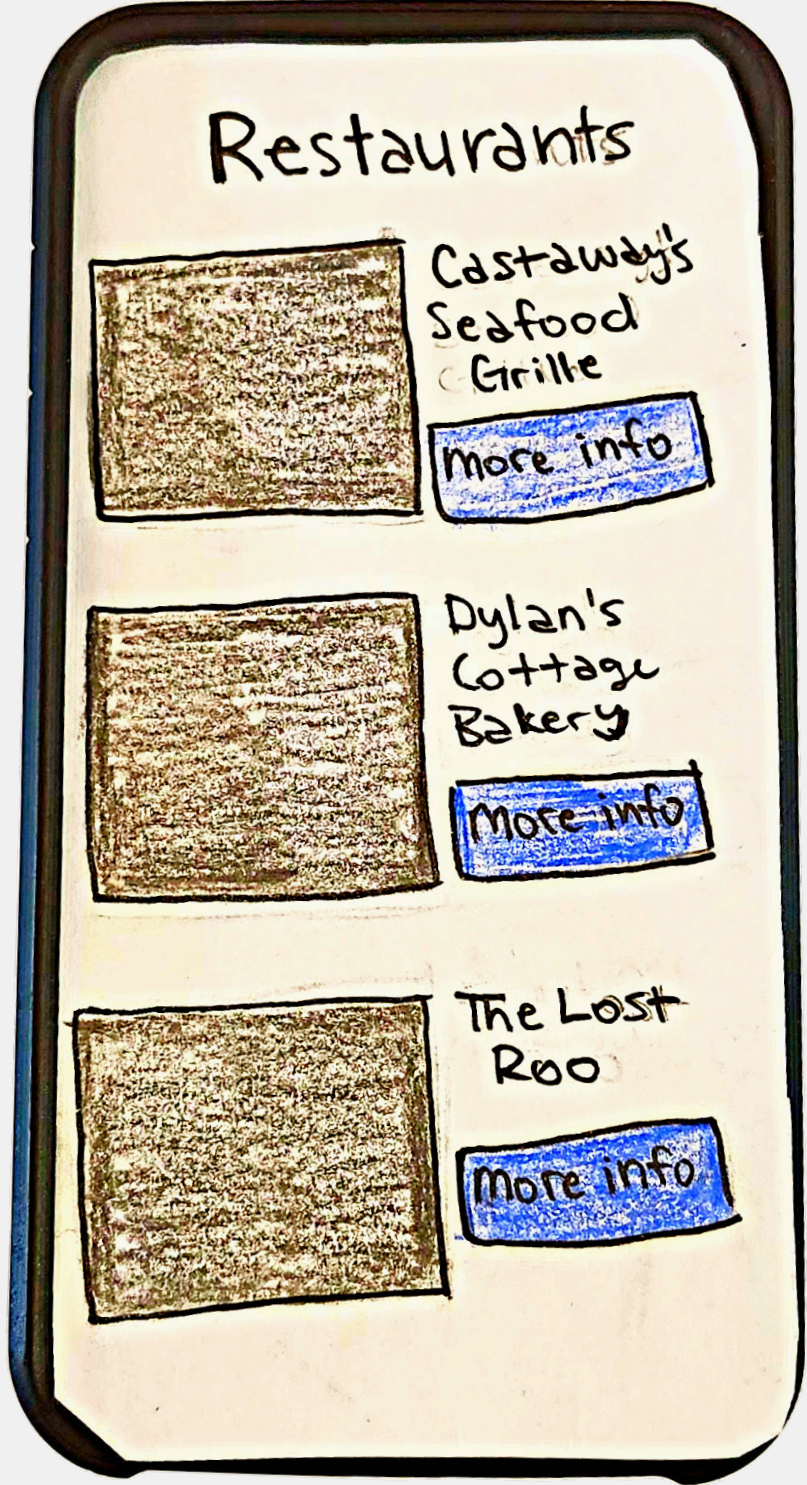 Restaurants
Castaway's
Seafood
Grille
more info
Dylan's
Cottage
Bakery
More info
The Lost
Roo
More info